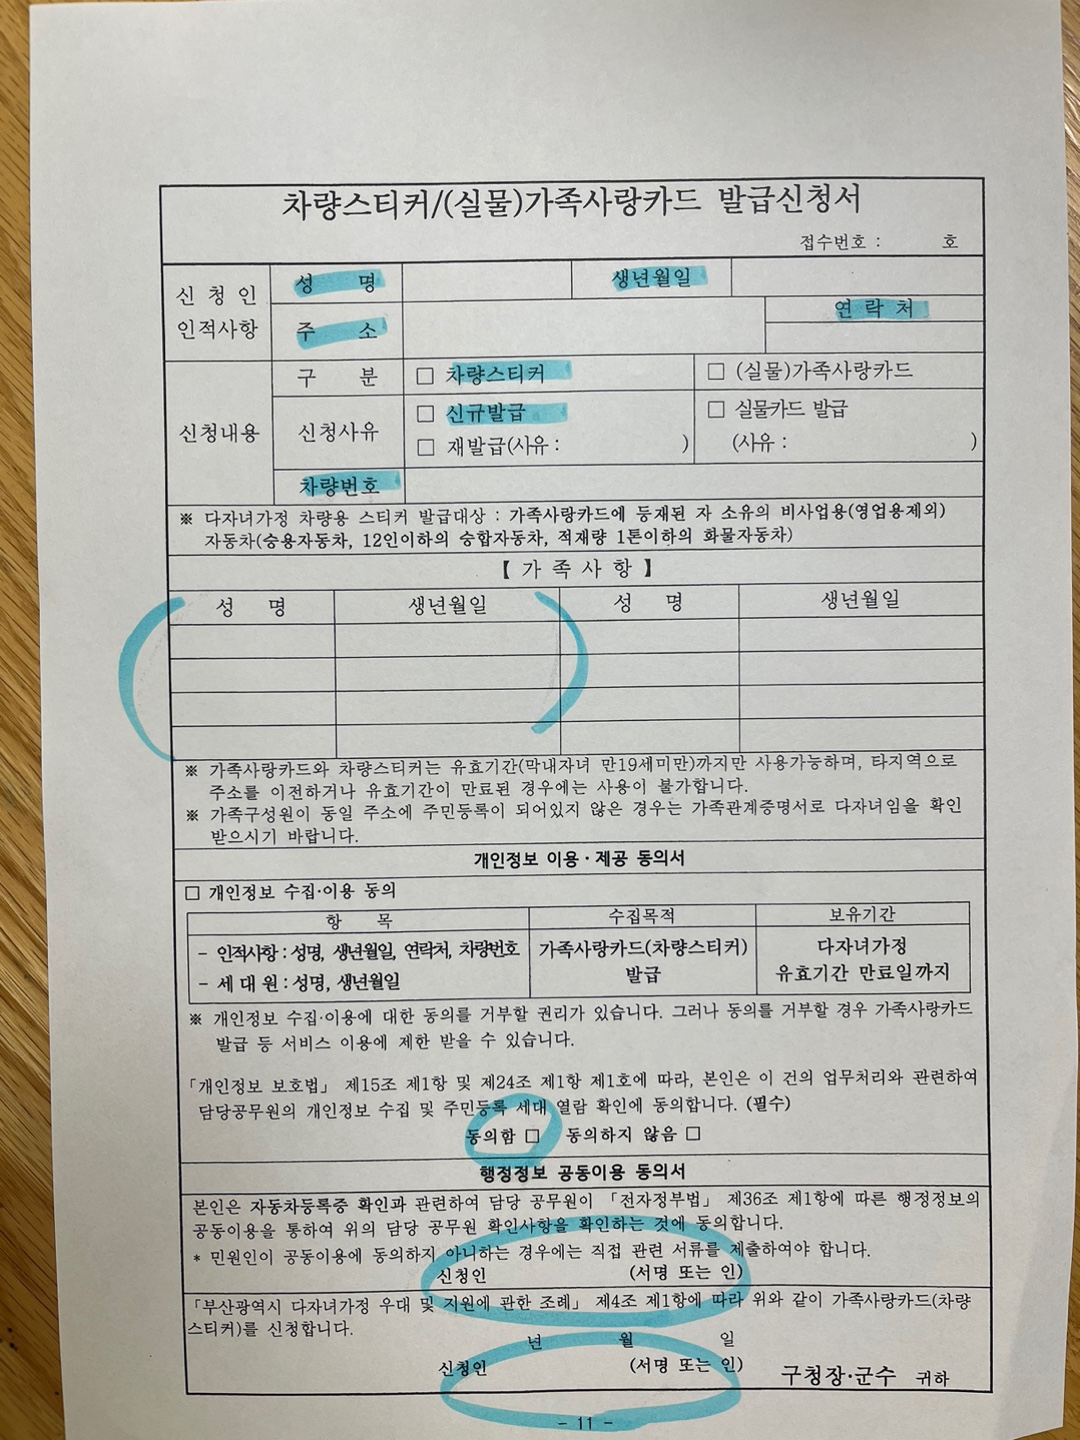 차량스티커/(실물)가족사랑카드 발급신청서
접수번호 : 호
신 청 인
인적사항
성 명
생년월일
주 소
연 락 처
신청내용
구 분
□ 차량스티커
□ (실물)가족사랑카드
신청사유
□ 신규발급
□ 재발급(사유 : )
□ 실물카드 발급
(사유 : )
차량번호
※ 다자녀가정 차량용 스티커 발급대상 : 가족사랑카드에 등재된 자 소유의 비사업용(영업용제외)
자동차(승용자동차, 12인이하의 승합자동차, 적재량 1톤이하의 화물자동차)
【 가 족 사 항 】
성 명 생년월일 성 명 생년월일
※ 가족사랑카드와 차량스티커는 유효기간(막내자녀 만19세미만)까지만 사용가능하며, 타지역으로
주소를 이전하거나 유효기간이 만료된 경우에는 사용이 불가합니다.
※ 가족구성원이 동일 주소에 주민등록이 되어있지 않은 경우는 가족관계증명서로 다자녀임을 확인
받으시기 바랍니다.
개인정보 이용·제공 동의서
□ 개인정보 수집·이용 동의
항 목 수집목적 보유기간
- 인적사항 : 성명, 생년월일, 연락처, 차량번호
- 세 대 원 : 성명, 생년월일
가족사랑카드(차량스티커)
발급
다자녀가정
유효기간 만료일까지
※ 개인정보 수집·이용에 대한 동의를 거부할 권리가 있습니다. 그러나 동의를 거부할 경우 가족사랑카드
발급 등 서비스 이용에 제한 받을 수 있습니다.
「개인정보 보호법」 제15조 제1항 및 제24조 제1항 제1호에 따라, 본인은 이 건의 업무처리와 관련하여
담당공무원의 개인정보 수집 및 주민등록 세대 열람 확인에 동의합니다. (필수)
동의함 □ 동의하지 않음 □
행정정보 공동이용 동의서
본인은 자동차등록증 확인과 관련하여 담당 공무원이 「전자정부법」 제36조 제1항에 따른 행정정보의
공동이용을 통하여 위의 담당 공무원 확인사항을 확인하는 것에 동의합니다.
* 민원인이 공동이용에 동의하지 아니하는 경우에는 직접 관련 서류를 제출하여야 합니다.
신청인 (서명 또는 인)
「부산광역시 다자녀가정 우대 및 지원에 관한 조례」 제4조 제1항에 따라 위와 같이 가족사랑카드(차량
스티커)를 신청합니다.
년 월 일
신청인 (서명 또는 인)
구청장·군수 귀하
- 11 -